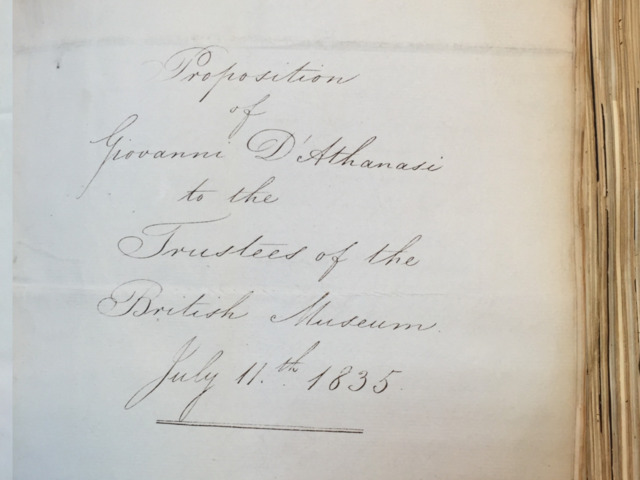 Proposition
of
Giovanni D'Athanasi
to the
Trustees of the
British Museum.
July 11.th 1835.